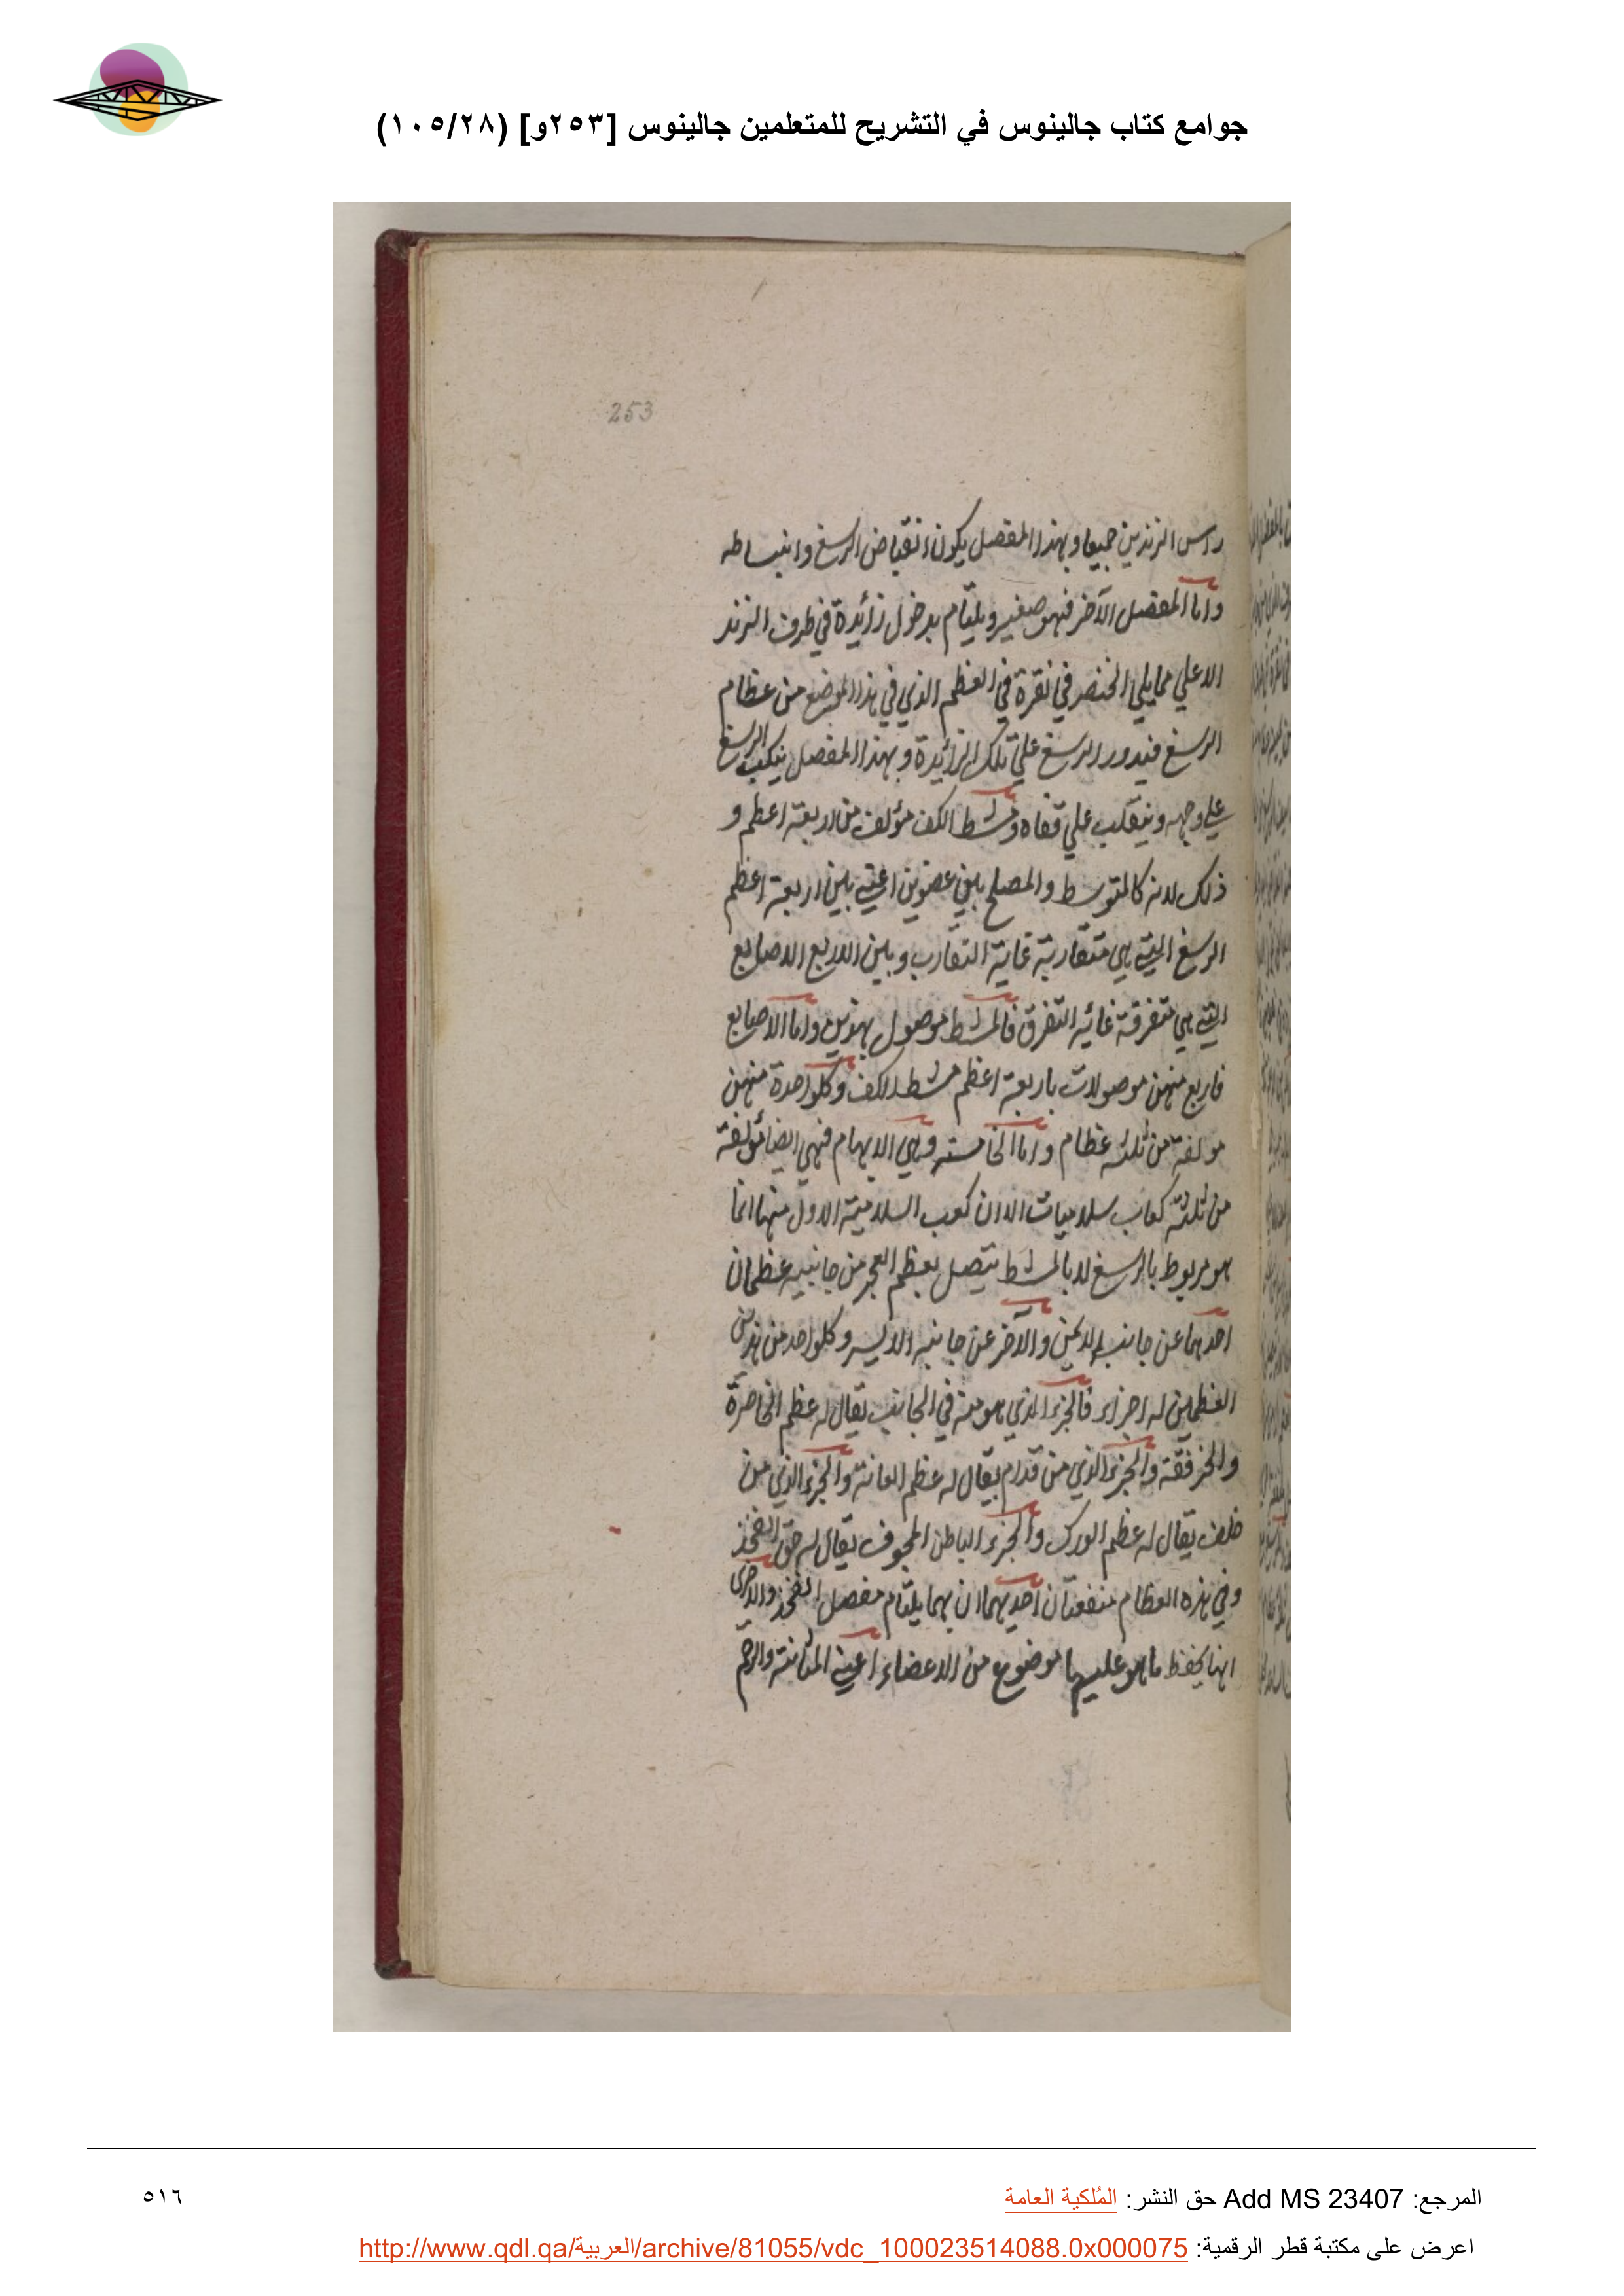 جوامع كتاب جالينوس في التشريح للمتعلمين جالينوس [٢٥٣و] (١٠٥/٢٨)
253
راس الزندين جميعا وبهذا المفصل يكون انقباض الرسغ وانبساطه
واما المفصل الآخر فهو صغير ويلتئام بدخول زائدة في طرف الزند
الاعلي مما يلي الخنصر في نقرة في العظم الذي في هذا الموضع من عظام
الرسغ فيدور الرسغ علي تلك الزائدة وبهذا المفصل ينكب الرسغ
علي وجهه وينقلب علي قفاه ومشط الكف مؤلف من اربعة اعظم و
ذلك لانه كالمتوسط والمصلح بين عضوين اعني بين اربعة اعظم
الرسغ التي هي متقاربة غاية التقارب وبين الاربع الاصابع
التي هي متفرقة غاية التفرق فالمشط موصول بهذين واما الاصابع
فاربع منهن موصولات باربعة اعظم مشط الكف وكلواحدة منهن
مولفة من ثلثة عظام واما الخامسة وهي الابهام فهي ايضا مؤلفة
من ثلثة كعاب سلاميات الا ان كعب السلامية الاول منها انما
هو مربوط بالرسغ لا بالمشط يتصل بعظم العجز من جانبيه عظمان
احدهما عن جانبه الايمن والآخر عن جانبه الايسر وكلواحد من هذين
العظمين له اجزاء فالجزء الذي هو منه في الجانب يقال له عظم الخاصرة
والحرقفة والجزء الذي من قدام يقال له عظم العانة والجزء الذي من
خلف يقال له عظم الورك والجزء الباطن المجوف يقال له حق الفخذ
وفي هذه العظام منفعتان احديهما ان بهما يلتام مفصل الفخذ والاخرى
انها يحفظ ما هو عليها موضوع من الاعضاء اعني المثانة والرحم
المرجع: Add MS 23407 حق النشر: المُلكية العامة
٥١٦
اعرض على مكتبة قطر الرقمية: http://www.qdl.qa/العربية/archive/81055/vdc_100023514088.0x000075